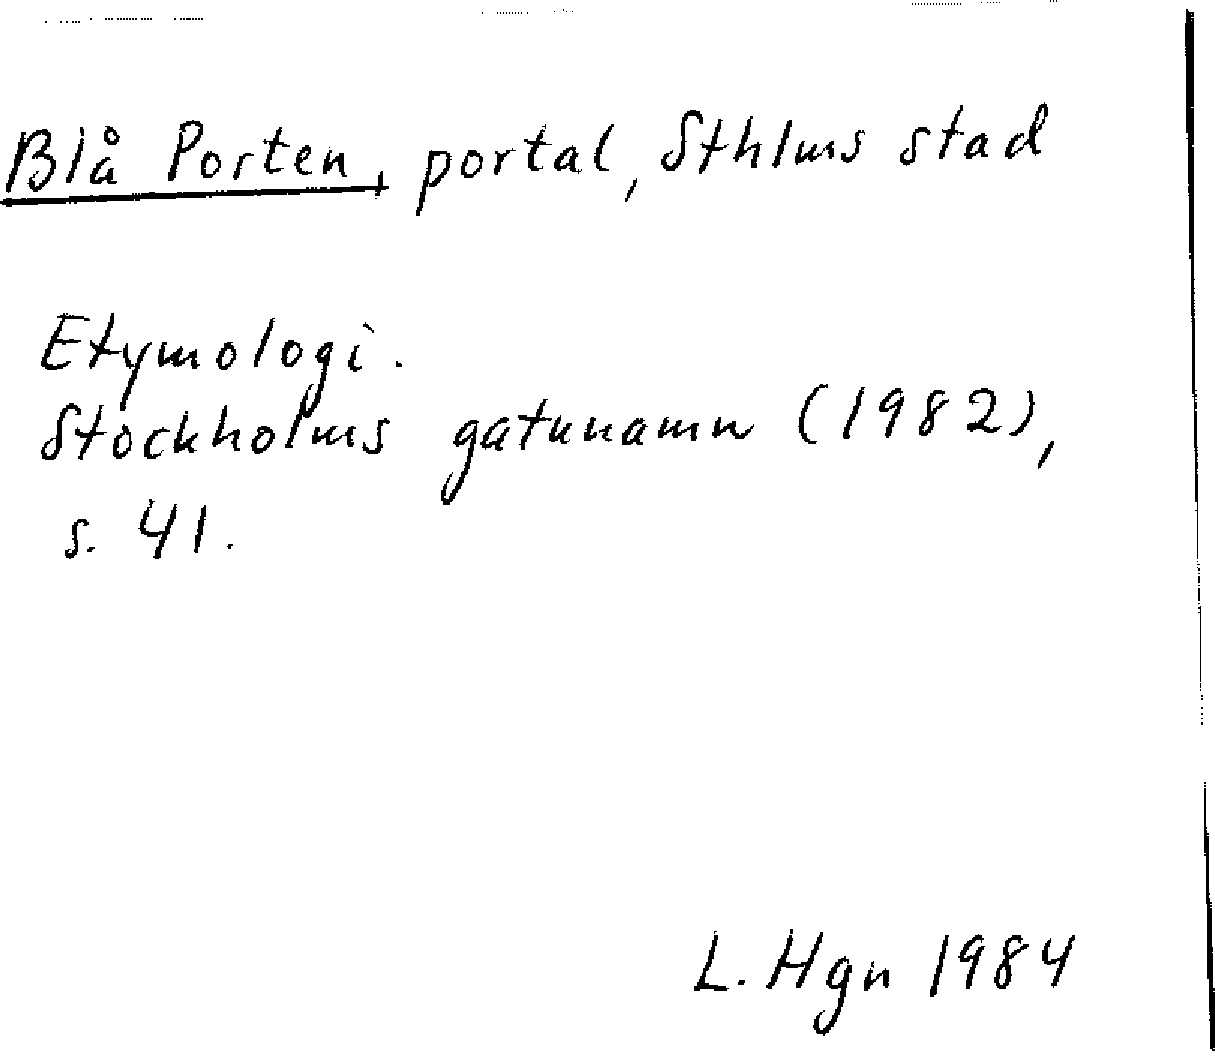 Blå Porten, portal, Sthlms stad
Etymologi.
Stockholms gatunamn (1982),
s. 41.
L. Hgn 1984